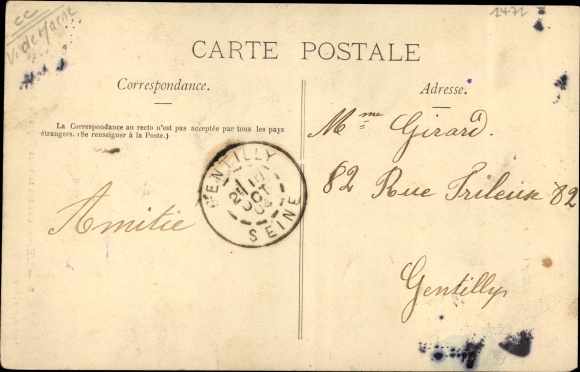 CC
V. de Marne
1471
CARTE POSTALE
Correspondance.
Adresse.
La Correspondance au recto n'est pas acceptée par tous les pays
étrangers. (Se renseigner à la Poste.)
Mme Girard.
82 Rue Frileuse 82
Gentilly
Amitie
GENTILLY
OCT
SEINE